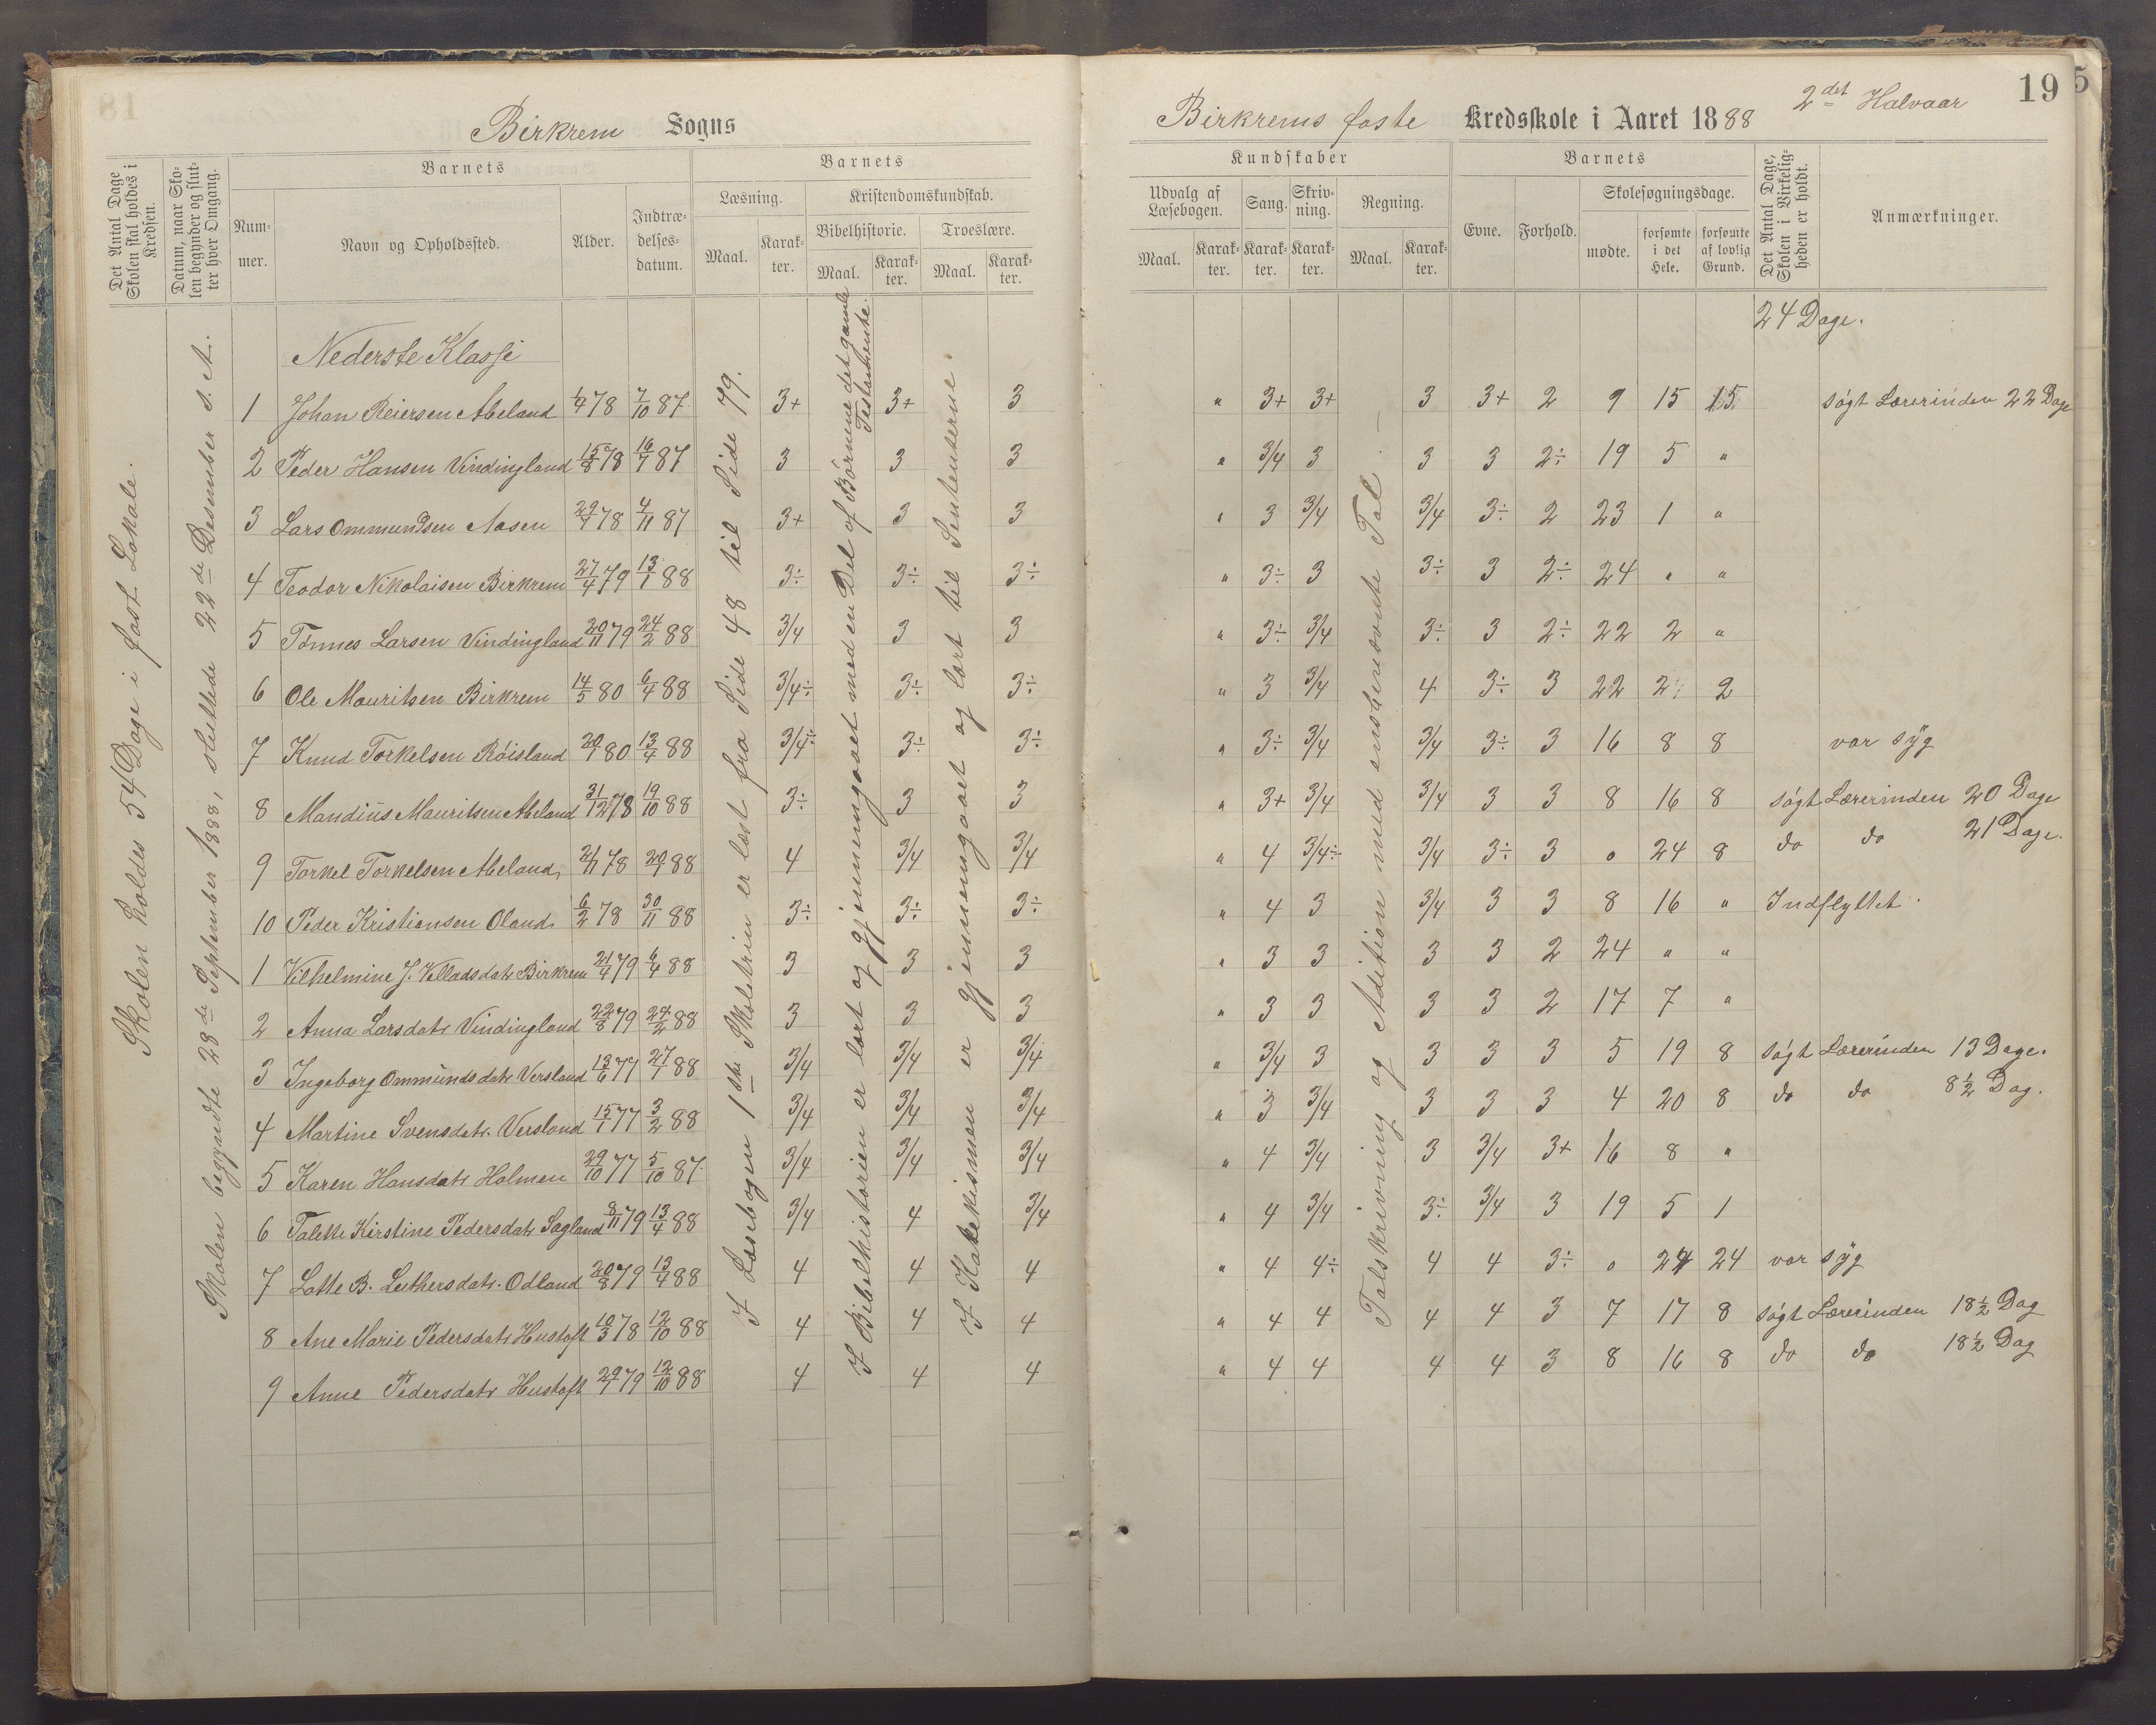 Birkrem Sogns
Birkrems faste Kredsskole i Aaret 1888 2det Halvaar
19
5
Det Antal Dage Skolen skal holdes i Kredsen.
Datum, naar Skolen begynder og slutter hver Omgang.
Barnets
Nummer.
Navn og Opholdssted.
Alder.
Indtrædelsesdatum.
Barnets
Læsning.
Maal.
Karakter.
Kristendomskundskab.
Bibelhistorie.
Maal.
Karakter.
Troeslære.
Maal.
Karakter.
Kundskaber
Udvalg af Læsebogen.
Maal.
Karakter.
Sang.
Karakter.
Skrivning.
Karakter.
Regning.
Maal.
Karakter.
Barnets
Evne.
Forhold.
Skolesøgningsdage.
mødte.
forsømte i det Hele.
forsømte af lovlig Grund.
Det Antal Dage, Skolen i Virkeligheden er holdt.
Anmærkninger.
Skolen holdes 54 Dage i fast Lokale.
Skolen begyndte 28de September 1888, sluttede 22de Desember s. A.
I Læsebogen 1ste Skoletrin er læst fra Side 48 til Side 79.
I Bibelhistorien er lært og gjennemgaaet med en Del af Børnene det gamle Testamente.
I Katekismen er gjennemgaaet og lært til Sententserne.
Talskrivning og Adition med ensbenævnte Tal.
24 Dage.
Nederste Klasse
1 Johan Reiersen Æbeland 1/4 78 7/10 87 3+ 3+ 3 " 3+ 3+ 3 3+ 2 9 15 15 søgt Lærerinden 22 Dage
2 Peder Hansen Vindingland 15/8 78 16/7 87 3 3 3 " 3/4 3 3 3 2÷ 19 5 "
3 Lars Ommundsen Aasen 29/7 78 4/11 87 3+ 3 3 " 3 3/4 3/4 3÷ 2 23 1 "
4 Teodor Nikolaisen Birkrem 27/4 79 13/1 88 3÷ 3÷ 3÷ " 3÷ 3 3÷ 3 2÷ 24 " "
5 Tønnes Larsen Vindingland 20/11 79 24/2 88 3/4 3 3 " 3÷ 3/4 3÷ 3 2÷ 22 2 "
6 Ole Mauritsen Birkrem 14/5 80 6/4 88 3/4÷ 3÷ 3÷ " 3 3/4 4 3÷ 3 22 2 2
7 Knud Torkelsen Røisland 20/1 80 13/4 88 3/4÷ 3÷ 3÷ " 3÷ 3/4 3/4 3÷ 3 16 8 8 var syg
8 Mandius Mauritsen Æbeland 31/12 78 19/10 88 3÷ 3 3 " 3+ 3/4 3/4 3 3 8 16 8 søgt Lærerinden 20 Dage
9 Torkel Torkelsen Æbeland 21/1 78 20/7 88 4 3/4 3/4 " 4 3/4÷ 3/4 3÷ 3 0 24 8 do do 21 Dage.
10 Peder Kristiansen Oland 6/2 78 30/11 88 3÷ 3÷ 3÷ " 4 3 3/4 3 3 8 16 " Indflyttet.
1 Vilhelmine J. Velladsdatr Birkrem 21/4 79 6/4 88 3 3 3 " 3 3 3 3 2 24 " "
2 Anna Larsdatr Vindingland 22/8 79 24/2 88 3 3 3 " 3 3 3 3 2 17 7 "
3 Ingeborg Ommundsdatr Versland 13/6 77 27/7 88 3/4 3/4 3/4 " 3/4 3 3 3 3 5 19 8 søgt Lærerinden 13 Dage.
4 Martine Svensdatr. Versland 15/1 77 3/2 88 3/4 3/4 3/4 " 3 3/4 3 3 3 4 20 8 do do 8½ Dag.
5 Karen Hansdatr Holmen 29/10 77 5/10 87 3/4 3/4 3/4 " 4 3/4 3 3/4 3+ 16 8 "
6 Talette Kirstine Pedersdatr Sagland 8/11 79 13/4 88 3/4 4 3/4 " 4 3/4 3÷ 3/4 3 19 5 1
7 Lotte B. Luthersdatr. Odland 20/8 79 13/4 88 4 4 4 " 4 4÷ 4 4 3÷ 0 24 24 var syg
8 Ane Marie Pedersdatr Hustoft 10/3 78 12/10 88 4 4 4 " 4 4 4 4 3 7 17 8 søgt Lærerinden 18½ Dag
9 Anne Pedersdatr Hustoft 29/7 79 12/10 88 4 4 4 " 4 4 4 4 3 8 16 8 do do 18½ Dag